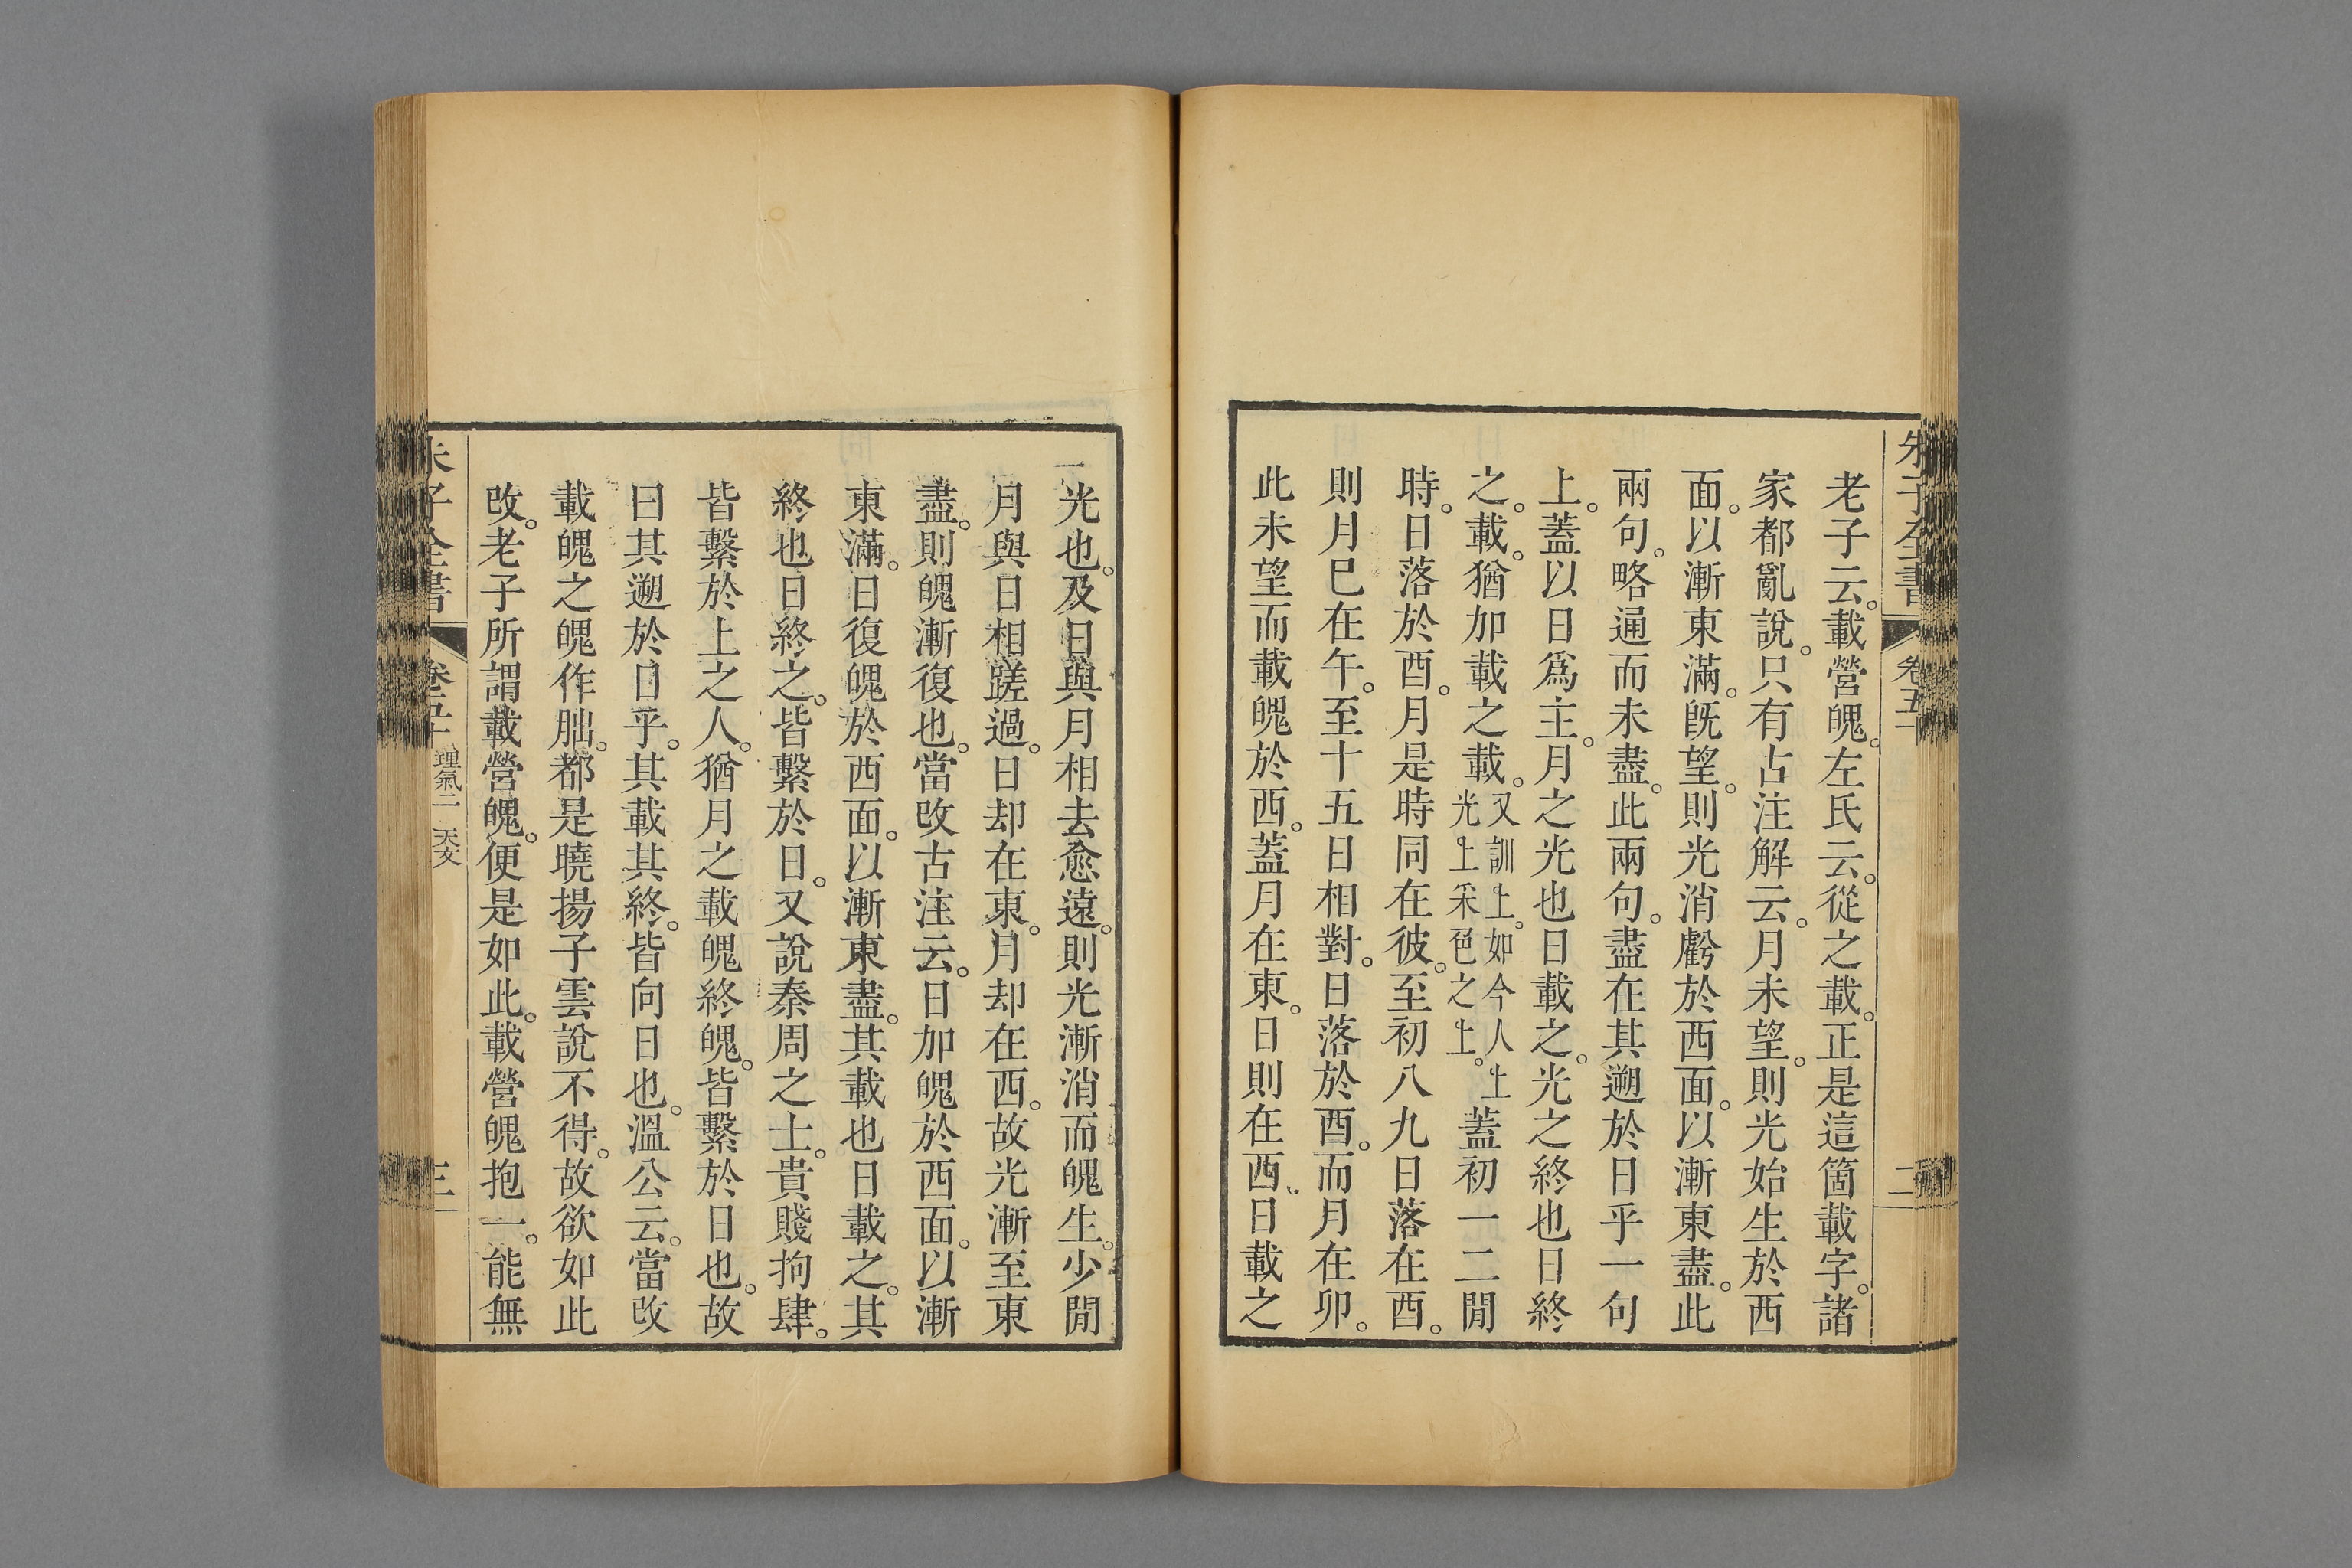 朱子全書 卷五十 二
老子云。載營魄。左氏云。從之載。正是這箇載字。諸
家都亂說。只有古注解云。月未望。則光始生於西
面。以漸東滿。旣望。則光消虧於西面。以漸東盡。此
兩句。略通而未盡。此兩句。盡在其遡於日乎一句
上。蓋以日爲主。月之光也日載之。光之終也日終
之。載。猶加載之載。又訓上。如今人上光上采色之上。蓋初一二閒
時。日落於酉。月是時同在彼。至初八九日落在酉。
則月已在午。至十五日相對。日落於酉。而月在卯。
此未望而載魄於西。蓋月在東。日則在西。日載之
光也。及日與月相去愈遠。則光漸消而魄生。少閒
月與日相蹉過。日却在東。月却在西。故光漸至東
盡。則魄漸復也。當改古注云。日加魄於西面。以漸
東滿。日復魄於西面。以漸東盡。其載也日載之。其
終也日終之。皆繫於日。又說秦周之士。貴賤拘肆。
皆繫於上之人。猶月之載魄終魄。皆繫於日也。故
曰其遡於日乎。其載其終。皆向日也。溫公云。當改
載魄之魄作朏。都是曉揚子雲說不得。故欲如此
改。老子所謂載營魄。便是如此。載營魄抱一。能無
朱子全書 卷五十 理氣二 天文 三